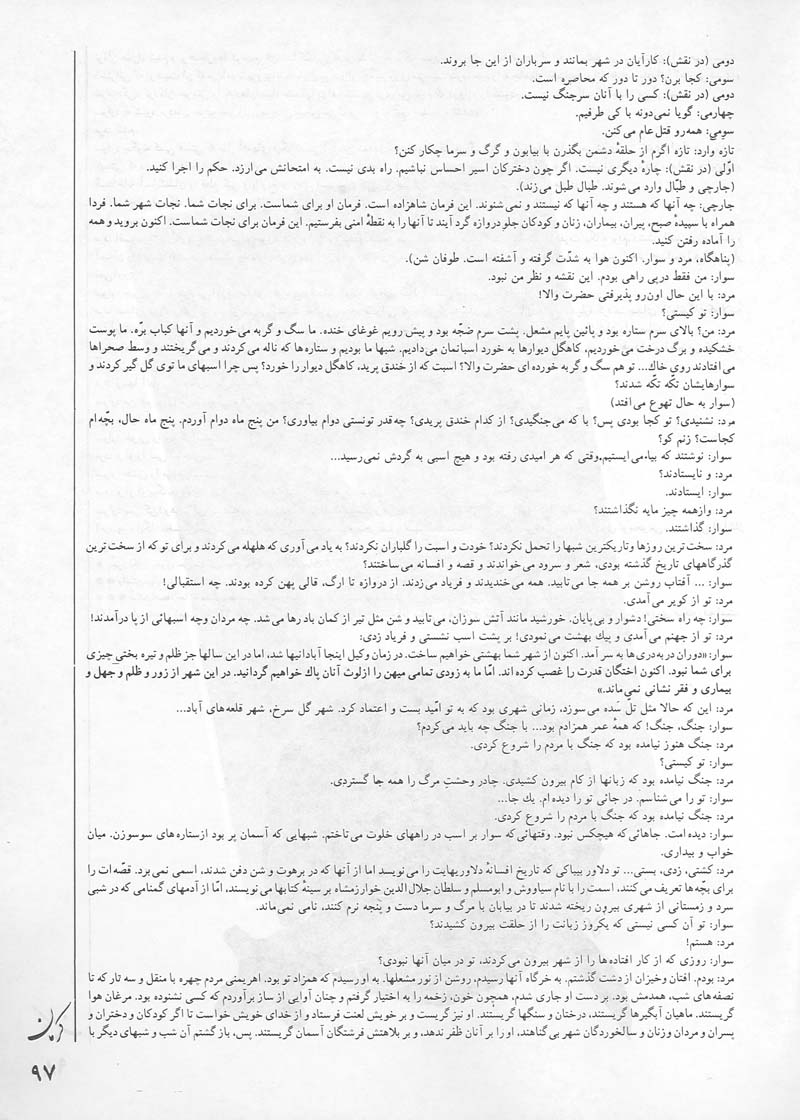 دومی (در نقش): کارآیان در شهر بمانند و سربازان از این جا بروند.
سومی: کجا برن؟ دور تا دور که محاصره است.
دومی (در نقش): کسی را با آنان سرجنگ نیست.
چهارمی: گویا نمی‌دونه با کی طرفیم.
سومی: همه‌رو قتل‌عام می‌کنن.
تازه وارد: تازه اگرم از حلقهٔ دشمن بگذرن با بیابون و گرگ و سرما چکار کنن؟
اوّلی (در نقش): چارهٔ دیگری نیست. اگر چون دخترکان اسیر احساس نباشیم. راه بدی نیست. به امتحانش می‌ارزد. حکم را اجرا کنید.
(جارچی و طبّال وارد می‌شوند. طبال طبل می‌زند).
جارچی: چه آنها که هستند و چه آنها که نیستند و نمی‌شنوند. این فرمان شاهزاده است. فرمان او برای شماست. برای نجات شما. نجات شهر شما. فردا
همراه با سپیدهٔ صبح، پیران، بیماران، زنان و کودکان جلو دروازه گرد آیند تا آنها را به نقطهٔ امنی بفرستیم. این فرمان برای نجات شماست. اکنون بروید و همه
را آماده رفتن کنید.
(پناهگاه، مرد و سوار. اکنون هوا به شدّت گرفته و آشفته است. طوفان شن).
سوار: من فقط درپی راهی بودم. این نقشه و نظر من نبود.
مرد: با این حال اون‌رو پذیرفتی حضرت والا!
سوار: تو کیستی؟
مرد: من؟ بالای سرم ستاره بود و پائین پایم مشعل. پشت سرم ضجّه بود و پیش رویم غوغای خنده. ما سگ و گربه می‌خوردیم و آنها کباب برّه. ما پوست
خشکیده و برگ درخت می‌خوردیم، کاهگل دیوارها به خورد اسبانمان می‌دادیم. شبها ما بودیم و ستاره‌ها که ناله می‌کردند و می‌گریختند و وسط صحراها
می‌افتادند روی خاك... تو هم سگ و گربه خورده‌ای حضرت والا؟ اسبت که از خندق پرید، کاهگل دیوار را خورد؟ پس چرا اسبهای ما توی گل گیر کردند و
سوارهایشان تکّه تکّه شدند؟
(سوار به حال تهوع می‌افتد)
مرد: نشنیدی؟ تو کجا بودی پس؟ با که می‌جنگیدی؟ از کدام خندق پریدی؟ چه‌قدر تونستی دوام بیاوری؟ من پنج ماه دوام آوردم. پنج ماه حال، بچّه‌ام
کجاست؟ زنم کو؟
سوار: نوشتند که بیا، می‌ایستیم. وقتی که هر امیدی رفته بود و هیچ اسبی به گردش نمی‌رسید...
مرد: و نایستادند؟
سوار: ایستادند.
مرد: وازهمه چیز مایه نگذاشتند؟
سوار: گذاشتند.
مرد: سخت‌ترین روزها وتاریکترین شبها را تحمل نکردند؟ خودت و اسبت را گلباران نکردند؟ به یاد می‌آوری که هلهله می‌کردند و برای تو که از سخت‌ترین
گذرگاههای تاریخ گذشته بودی، شعر و سرود می‌خواندند و قصه و افسانه می‌ساختند؟
سوار: ... آفتاب روشن بر همه جا می‌تابید. همه می‌خندیدند و فریاد می‌زدند. از دروازه تا ارگ، قالی پهن کرده بودند. چه استقبالی!
مرد: تو از کویر می‌آمدی.
سوار: چه راه سختی! دشوار و بی‌پایان. خورشید مانند آتش سوزان، می‌تابید و شن مثل تیر از کمان باد رها می‌شد. چه مردان وچه اسبهائی از پا درآمدند!
مرد: تو از جهنم می‌آمدی و پیك بهشت می‌نمودی! بر پشت اسب نشستی و فریاد زدی:
سوار: «دوران دربه‌دری‌ها به سر آمد. اکنون از شهر شما بهشتی خواهیم ساخت. در زمان وکیل اینجا آبادانیها شد، اما در این سالها جز ظلم و تیره بختی چیزی
برای شما نبود. اکنون اختگان قدرت را غصب کرده‌اند. امّا ما به زودی تمامی میهن را ازلوث آنان پاك خواهیم گردانید. در این شهر از زور و ظلم و جهل و
بیماری و فقر نشانی نمی‌ماند.»
مرد: این که حالا مثل تل شده می‌سوزد، زمانی شهری بود که به تو امّید بست و اعتماد کرد. شهر گل سرخ، شهر قلعه‌های آباد...
سوار: جنگ، جنگ! که همهٔ عمر همزادم بود... با جنگ چه باید می‌کردم؟
مرد: جنگ هنوز نیامده بود که جنگ با مردم را شروع کردی.
سوار: تو کیستی؟
مرد: جنگ نیامده بود که زبانها از کام بیرون کشیدی. چادر وحشتِ مرگ را همه جا گستردی.
سوار: تو را می‌شناسم. در جائی تو را دیده‌ام. یك جا...
مرد: جنگ نیامده بود که جنگ با مردم را شروع کردی.
سوار: دیده‌امت. جاهائی که هیچکس نبود. وقتهائی که سوار بر اسب در راههای خلوت می‌تاختم. شبهایی که آسمان پر بود ازستاره‌های سوسوزن. میان
خواب و بیداری.
مرد: کشتی، زدی، بستی... تو دلاور بیباکی که تاریخ افسانهٔ دلاوریهایت را می‌نویسد اما از آنها که در برهوت و شن دفن شدند، اسمی نمی‌برد. قصّه‌ات را
برای بچّه‌ها تعریف می‌کنند، اسمت را با نام سیاووش و ابومسلم و سلطان جلال‌الدین خوارزمشاه بر سینهٔ کتابها می‌نویسند، امّا از آدمهای گمنامی که در شبی
سرد و زمستانی از شهری بیرون ریخته شدند تا در بیابان با مرگ و سرما دست و پنجه نرم کنند، نامی نمی‌ماند.
سوار: تو آن کسی نیستی که یکروز زبانت را از حلقت بیرون کشیدند؟
مرد: هستم!
سوار: روزی که از کار افتاده‌ها را از شهر بیرون می‌کردند، تو در میان آنها نبودی؟
مرد: بودم. افتان وخیزان از دشت گذشتم. به خرگاه آنها رسیدم، روشن از نور مشعلها. به او رسیدم که همزاد تو بود. اهریمنی مردم چهره با منقل و سه تار که تا
نصفه‌های شب، همدمش بود. بر دست او جاری شدم، همچون خون، زخمه را به اختیار گرفتم و چنان آوایی از ساز برآوردم که کسی نشنوده بود. مرغان هوا
گریستند. ماهیان آبگیرها گریستند، درختان و سنگها گریستند. او نیز گریست و بر خویش لعنت فرستاد و از خدای خویش خواست تا اگر کودکان و دختران و
پسران و مردان وزنان و سالخوردگان شهر بی‌گناهند، او را بر آنان ظفر ندهد، و بر بلاهتش فرشتگان آسمان گریستند. پس، بازگشتم آن شب و شبهای دیگر با
کرمان
۹۷